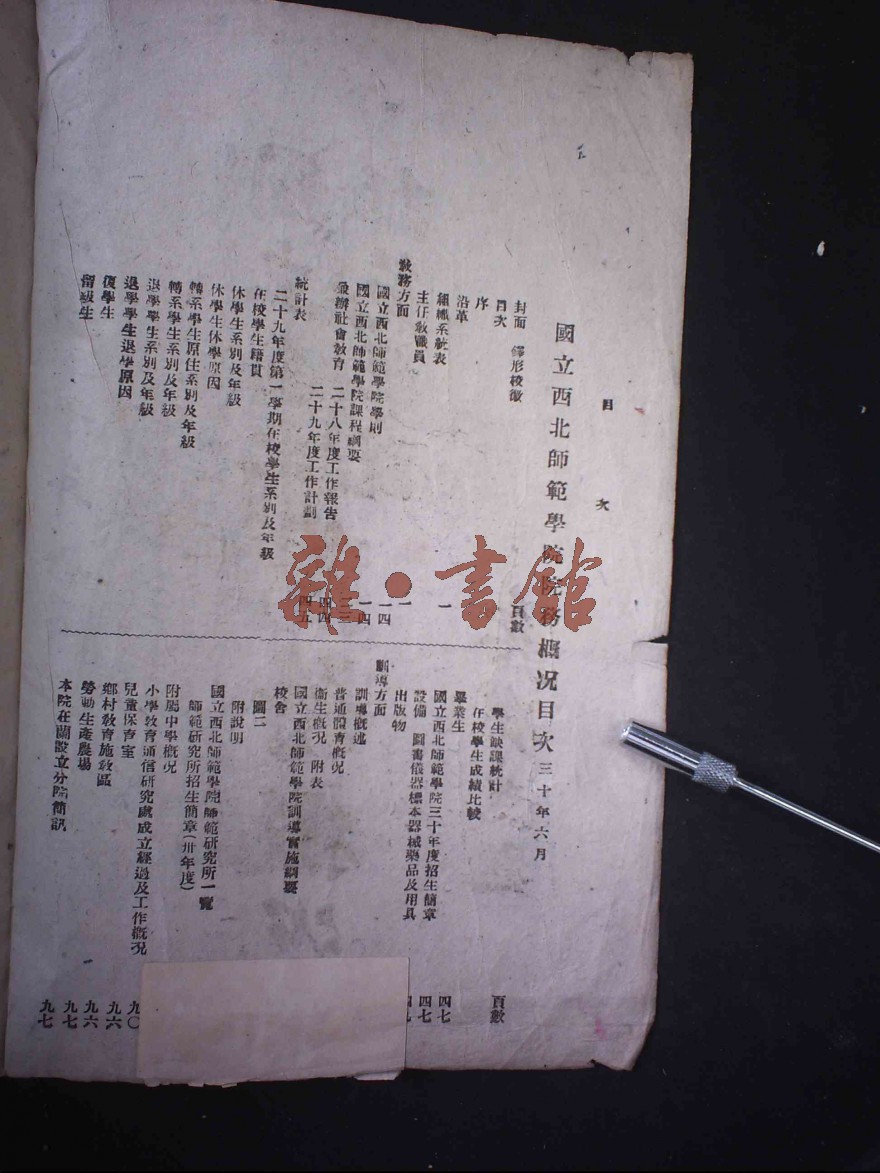 目次
國立西北師範學院院務概况目次 三十年六月
頁數
封面 鐸形校徽
目次
序
沿革
組織系統表 一
主任教職員
教務方面 一
國立西北師範學院學則 一四
國立西北師範學院課程綱要 一四
兼辦社會教育 二十八年度工作報告
二十九年度工作計劃 四四
統計表 四五
二十九年度第一學期在校學生系別及年級
在校學生籍貫
休學生系別及年級
休學生休學原因
轉系學生原住系別及年級
轉系學生系別及年級
退學學生系別及年級
退學學生退學原因
復學生
留級生
頁數
學生缺課統計
在校學生成績比較
畢業生 四七
國立西北師範學院三十年度招生簡章 四七
設備 圖書儀器標本器械藥品及用具
出版物
訓導方面
訓導概述
普通體育概况
衛生概况 附表
國立西北師範學院訓導實施綱要
校舍
圖二
附說明
國立西北師範學院師範研究所一覽
師範研究所招生簡章(卅年度)
附屬中學概况
小學教育通信研究處成立經過及工作概况 九〇
兒童保育室 九六
鄉村教育施教區 九六
勞動生產農場 九七
本院在蘭設立分院簡訊 九七
雜·書館